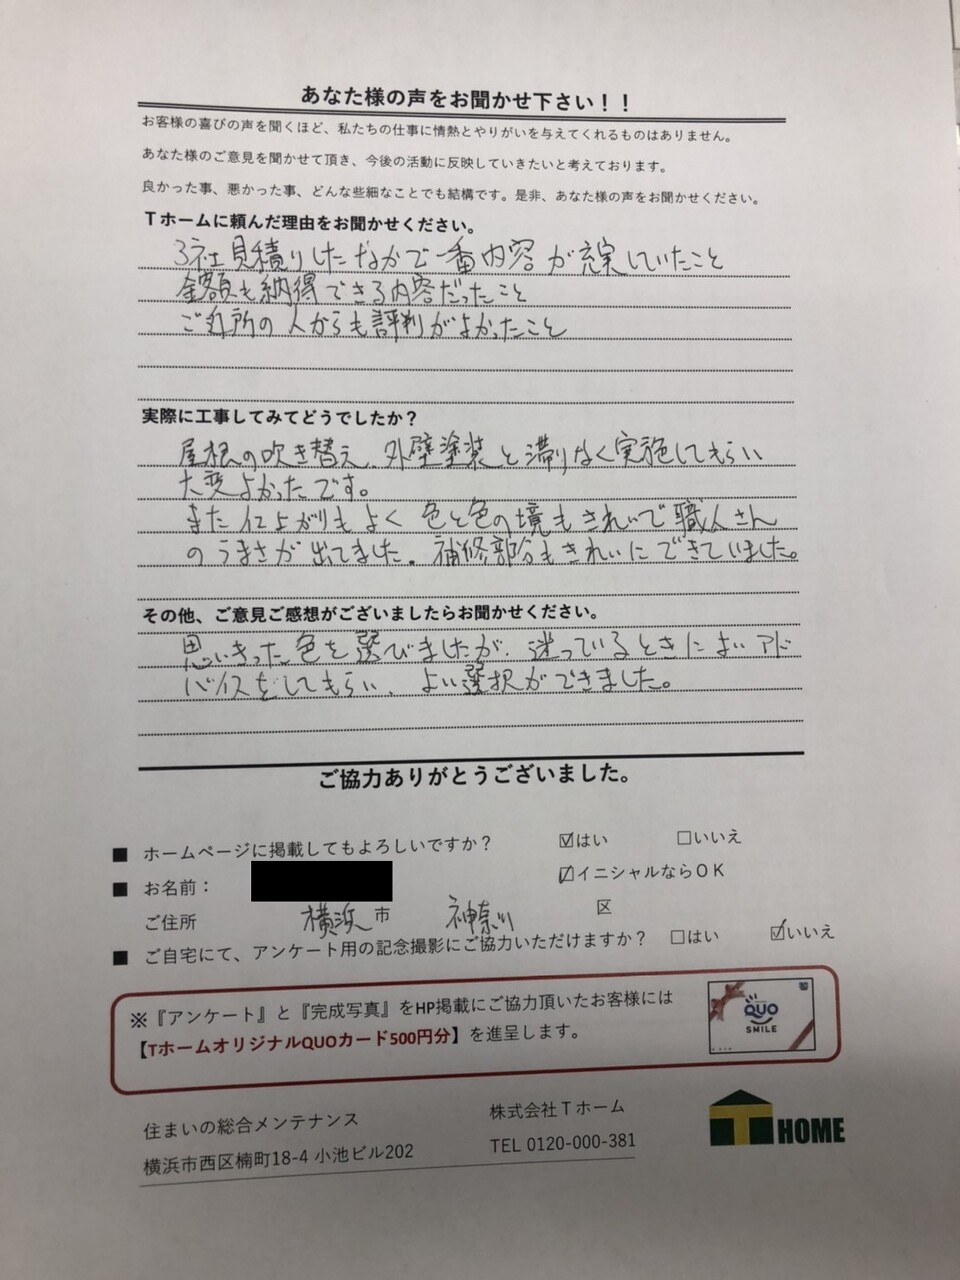 あなた様の声をお聞かせ下さい！！
お客様の喜びの声を聞くほど、私たちの仕事に情熱とやりがいを与えてくれるものはありません。
あなた様のご意見を聞かせて頂き、今後の活動に反映していきたいと考えております。
良かった事、悪かった事、どんな些細なことでも結構です。是非、あなた様の声をお聞かせください。
Ｔホームに頼んだ理由をお聞かせください。
3社見積りしたなかで一番内容が充実していたこと
金額も納得できる内容だったこと
ご近所の人からも評判がよかったこと
実際に工事してみてどうでしたか？
屋根の吹き替え、外壁塗装と滞りなく実施してもらい
大変よかったです。
また仕上がりもよく色と色の境もきれいで職人さん
のうまさが出てました。補修部分もきれいにできていました。
その他、ご意見ご感想がございましたらお聞かせください。
思いきった色を選びましたが、迷っているときによいアド
バイスをしてもらい、よい選択ができました。
ご協力ありがとうございました。
■ ホームページに掲載してもよろしいですか？ ☑はい □いいえ
■ お名前： ☑イニシャルならＯＫ
ご住所 横浜市 神奈川区
■ ご自宅にて、アンケート用の記念撮影にご協力いただけますか？ □はい ☑いいえ
※『アンケート』と『完成写真』をHP掲載にご協力頂いたお客様には
【TホームオリジナルQUOカード500円分】を進呈します。
QUO
SMILE
住まいの総合メンテナンス 株式会社Ｔホーム
横浜市西区楠町18-4 小池ビル202 TEL 0120-000-381
T HOME